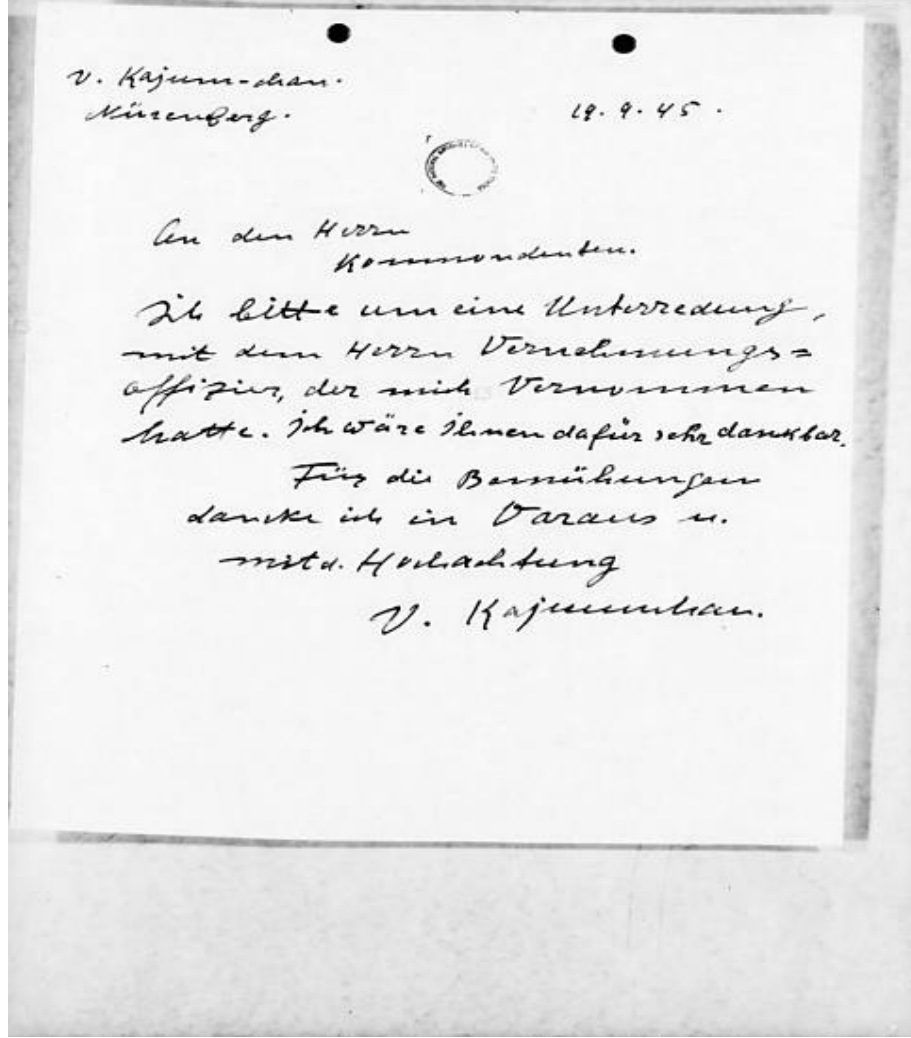 V. Kajum-chan.
Nürenberg.
19. 9. 45.
An den Herrn
Kommondenten.
Ich bitte um eine Unterredung,
mit dem Herrn Vernehmungs=
offizier, der mich Vernommen
hatte. Ich wäre Ihnen dafür sehr dankbar.
Für die Bemühungen
dancke ich in Voraus u.
mit d. Hochachtung
V. Kajumchan.